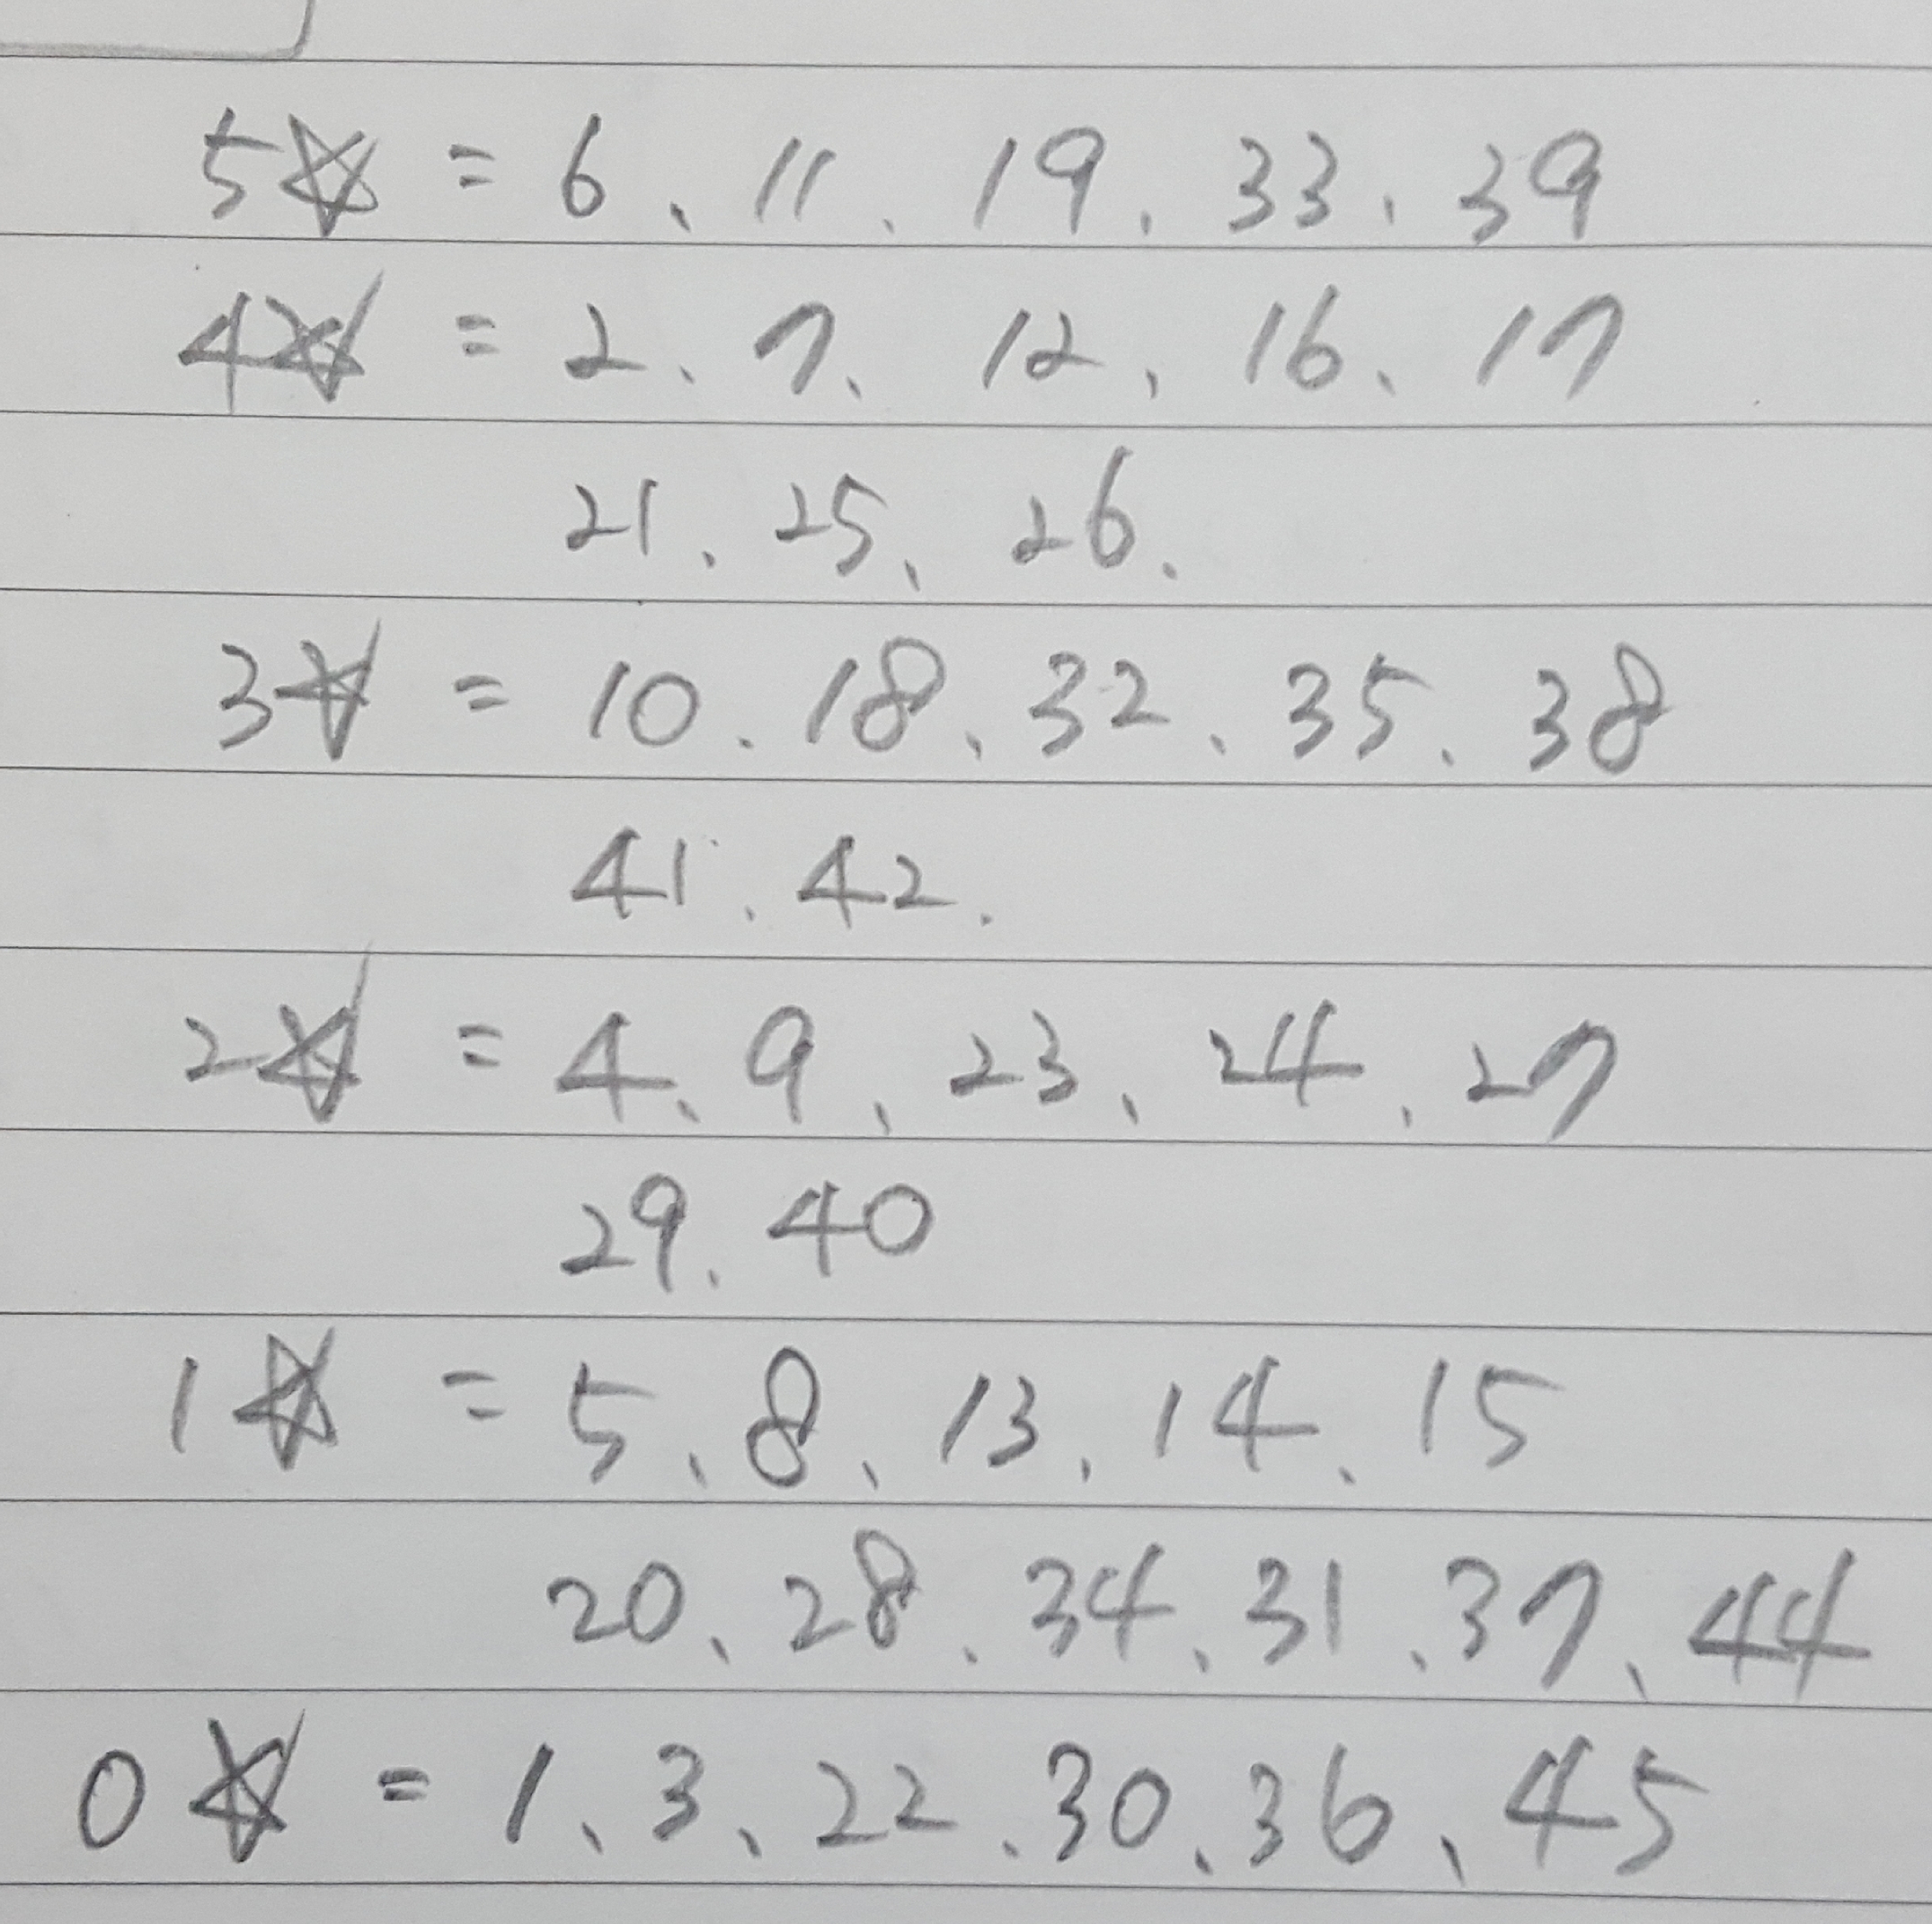 5☆ = 6、11、19、33、39
4☆ = 2、7、12、16、17
21、25、26、
3☆ = 10、18、32、35、38
41、42、
2☆ = 4、9、23、24、27
29、40
1☆ = 5、8、13、14、15
20、28、34、31、37、44
0☆ = 1、3、22、30、36、45